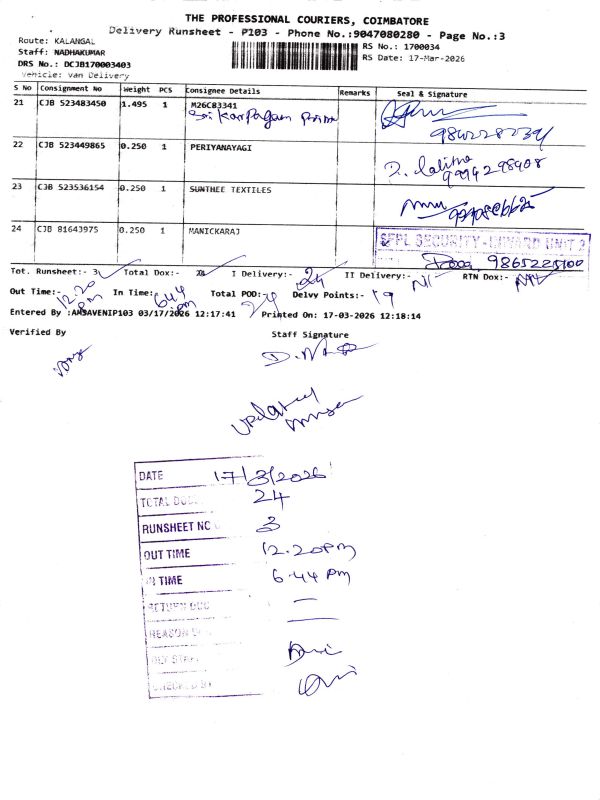 THE PROFESSIONAL COURIERS, COIMBATORE
Delivery Runsheet - P103 - Phone No.:9047080280 - Page No.:3
Route: KALANGAL
RS No.: 1700034
Staff: NADHAKUMAR
RS Date: 17-Mar-2026
DRS No.: DCJB170003403
Vehicle: Van Delivery
S No Consignment No Weight PCS Consignee Details Remarks Seal & Signature
21 CJB 523483450 1.495 1 M26C83341
Sri Karpagam
22 CJB 523449865 0.250 1 PERIYANAYAGI
9994298908
23 CJB 523536154 0.250 1 SUNTHEE TEXTILES
24 CJB 81643975 0.250 1 MANICKARAJ
SFPL SECURITY - INWARD UNIT 2
9865225100
Tot. Runsheet:- 3 Total Dox:- I Delivery:- 24 II Delivery:- RTN Dox:-
Out Time:- 12.20 pm In Time:- 6.44 pm Total POD:- 24 Delvy Points:- 19
Entered By :AMSAVENIP103 03/17/2026 12:17:41 Printed On: 17-03-2026 12:18:14
Verified By Staff Signature
Updated
DATE 17/3/2026
TOTAL 24
RUNSHEET NO 3
OUT TIME 12.20pm
IN TIME 6.44 pm
RETURN DOC —
REASON —
DLY STAFF
CHECKED BY